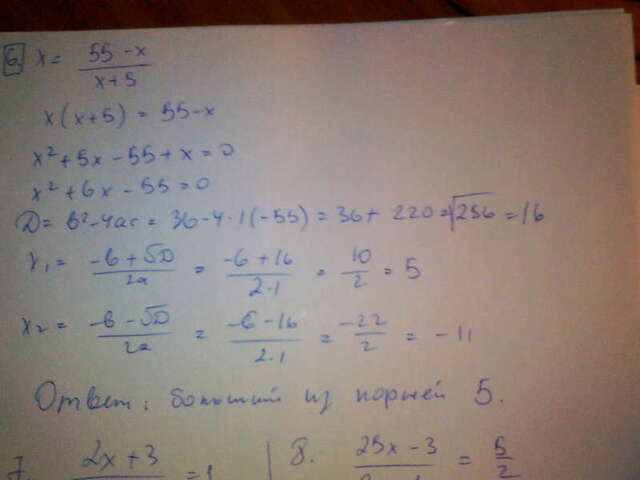 6 x = (55 - x)/(x + 5)
x(x+5) = 55 - x
x² + 5x - 55 + x = 0
x² + 6x - 55 = 0
D = b² - 4ac = 36 - 4 · 1(-55) = 36 + 220 = √256 = 16
x₁ = (-b + √D)/2a = (-6 + 16)/(2·1) = 10/2 = 5
x₂ = (-b - √D)/2a = (-6 - 16)/(2·1) = -22/2 = -11
Ответ: больший из корней 5.
7. 2x + 3 = 1 | 8. 25x - 3 = 5/2